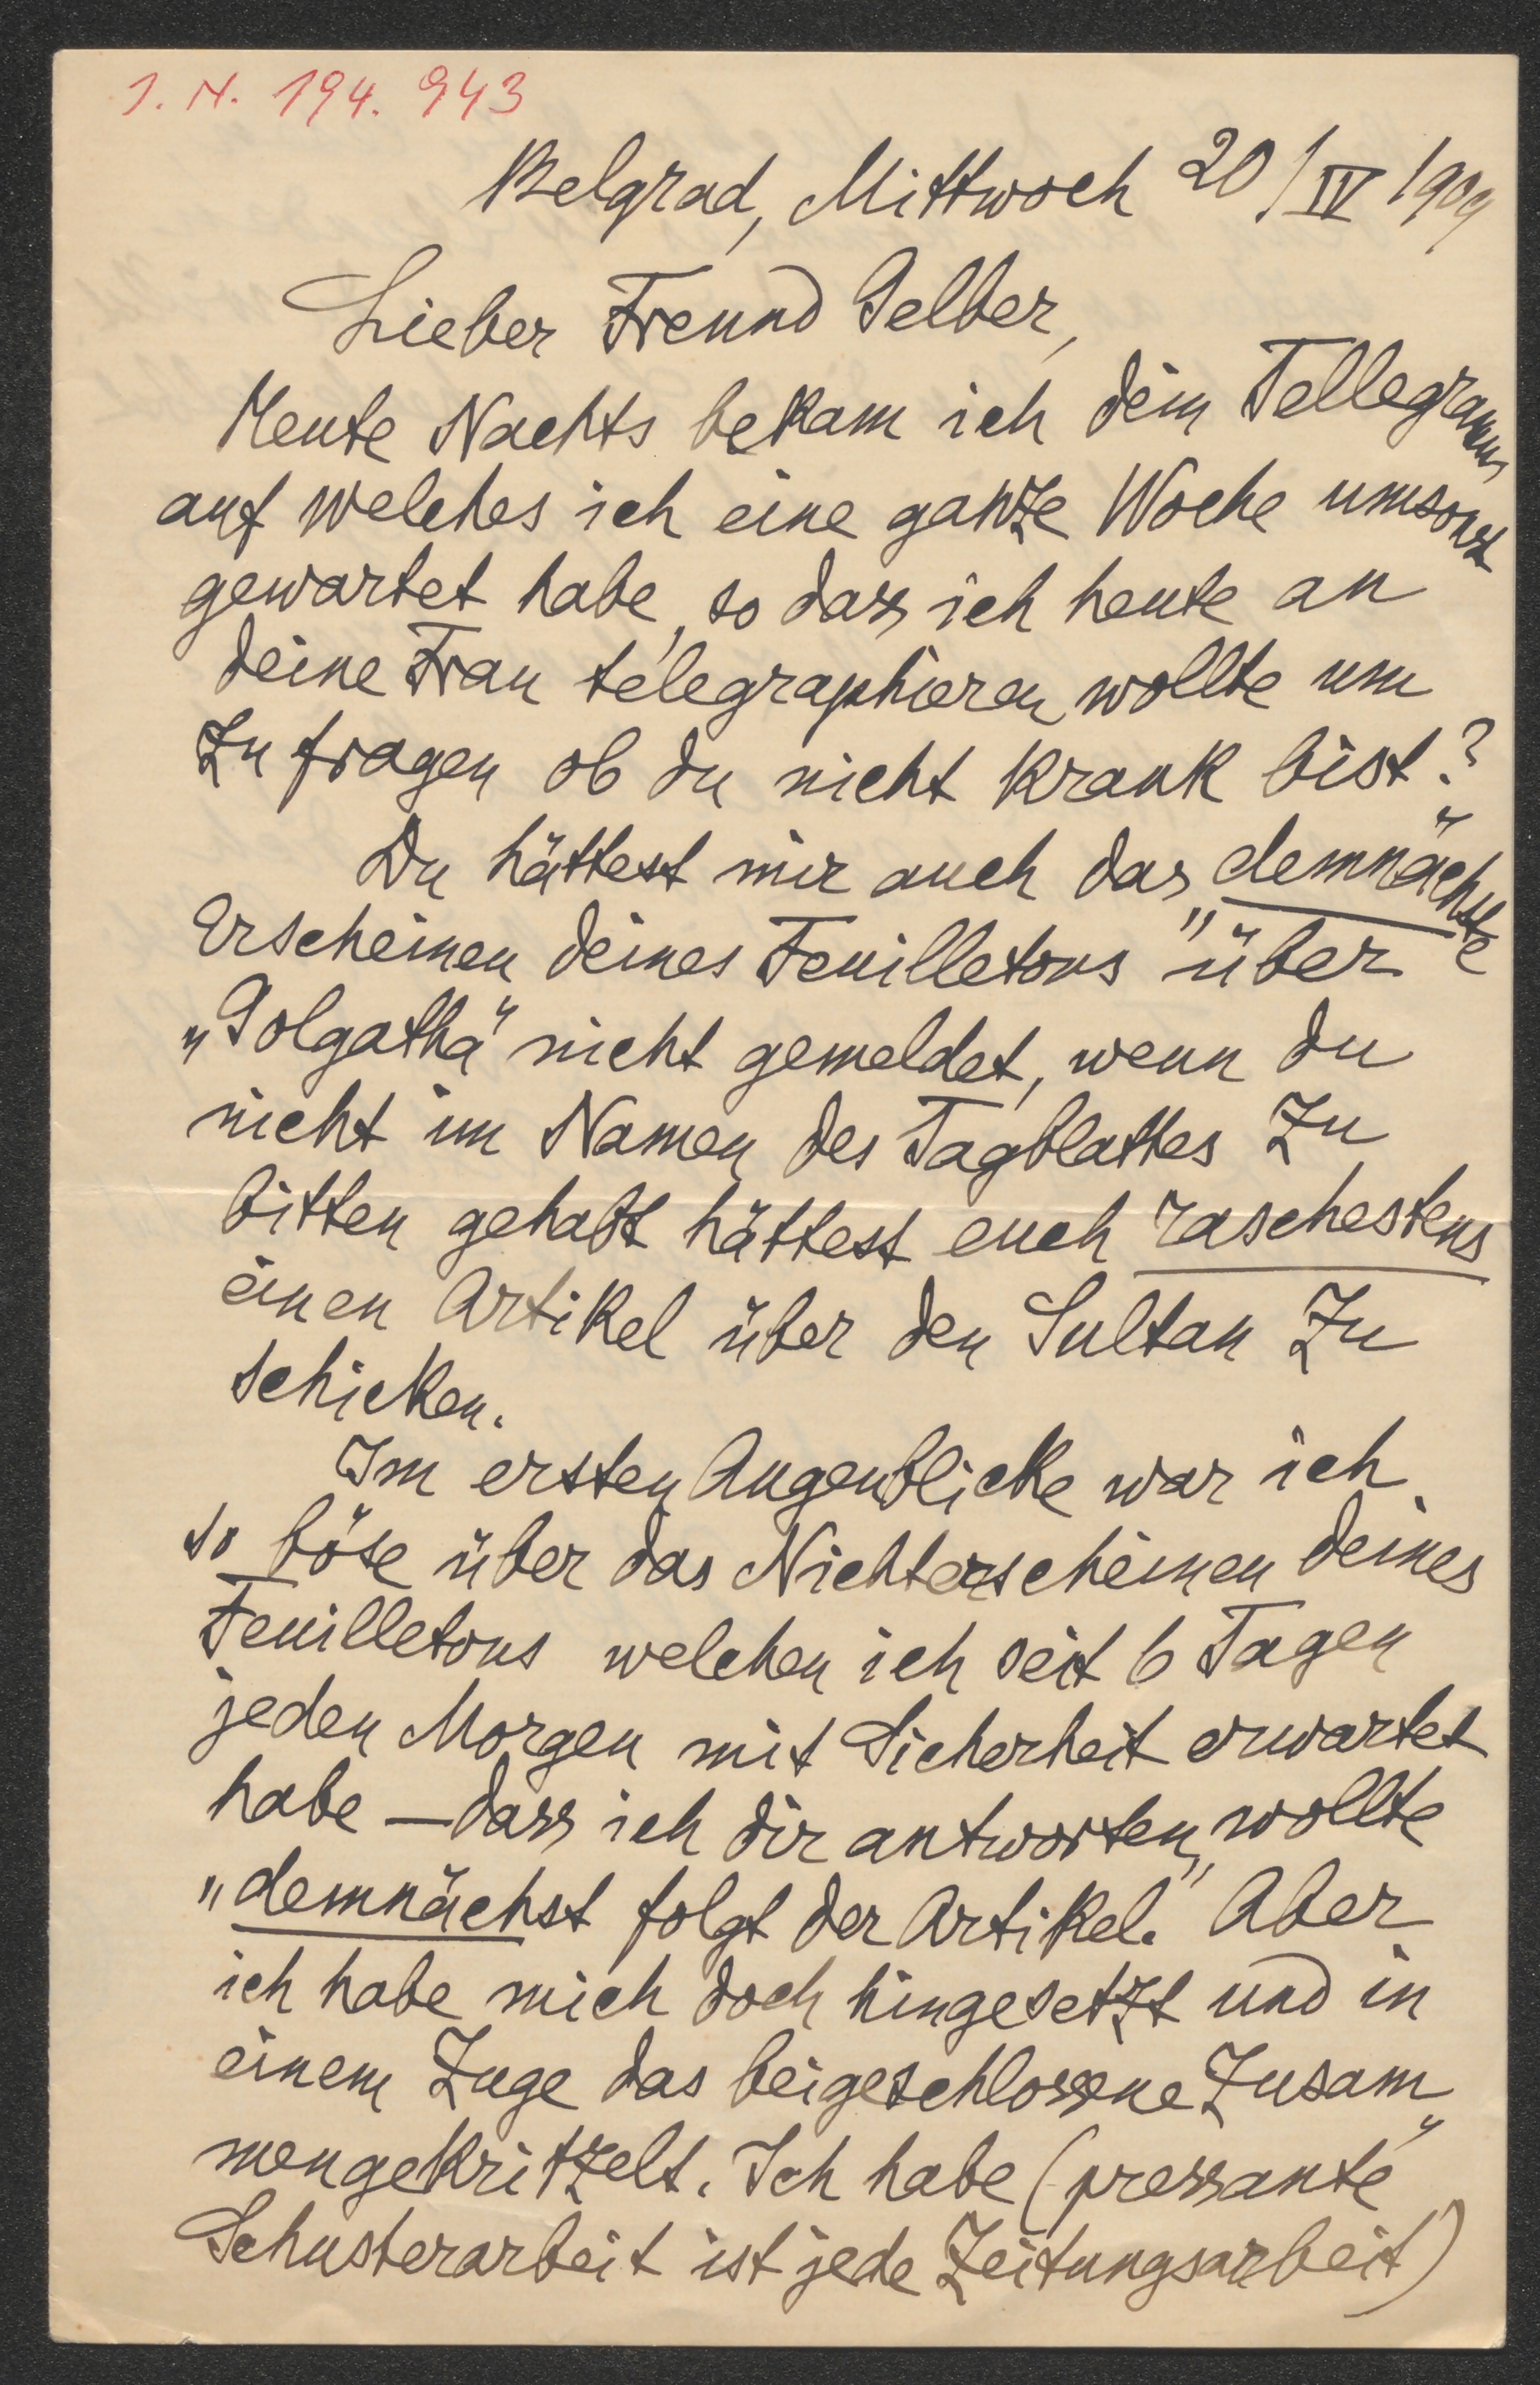 I. N. 194. 943
Belgrad, Mittwoch 20/IV 1909
Lieber Freund Gelber,
Heute Nachts bekam ich dein Tellegramm
auf welches ich eine ganze Woche umsonst
gewartet habe, so dass ich heute an
deine Frau telegraphieren wollte um
zu fragen ob du nicht krank bist?
Du hättest mir auch das „demnächste“
Erscheinen deines Feuilletons" über
„Golgatha“ nicht gemeldet, wenn du
nicht im Namen des Tagblattes zu
bitten gehabt hättest euch raschestens
einen Artikel über den Sultan zu
schicken.
Im ersten Augenblicke war ich
so böse über das Nichterscheinen deines
Feuilletons welchen ich seit 6 Tagen
jeden Morgen mit Sicherheit erwartet
habe – dass ich dir antworten wollte
„demnächst folgt der Artikel.“ Aber
ich habe mich doch hingesetzt und in
einem Zuge das beigeschlossene zusam„
mengekritzelt. Ich habe (pressante“
Schusterarbeit ist jede Zeitungsarbeit)